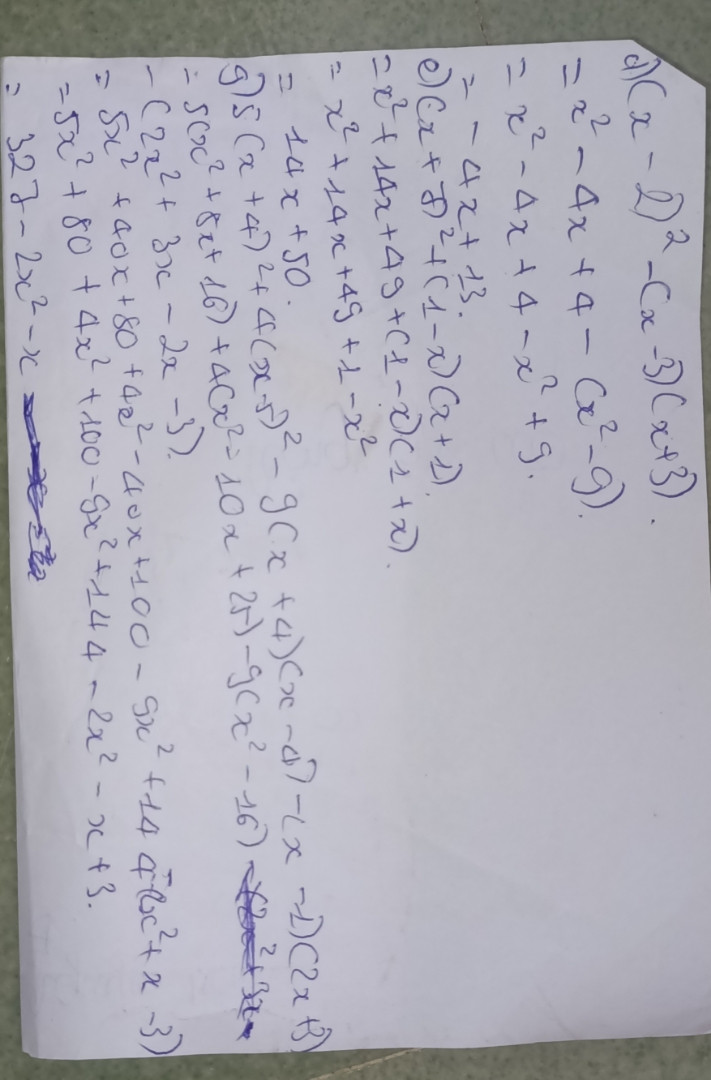 d) (x - 2)² - (x - 3)(x + 3).
= x² - 4x + 4 - (x² - 9).
= x² - 4x + 4 - x² + 9.
= - 4x + 13.
e) (x + 7)² + (1 - x)(x + 1).
= x² + 14x + 49 + (1 - x)(1 + x).
= x² + 14x + 49 + 1 - x²
= 14x + 50.
g) 5(x + 4)² + 4(x - 5)² - 9(x + 4)(x - 4) - (x - 1)(2x + 3)
= 5(x² + 8x + 16) + 4(x² - 10x + 25) - 9(x² - 16)
- (2x² + 3x - 2x - 3).
= 5x² + 40x + 80 + 4x² - 40x + 100 - 9x² + 144 - (2x² + x - 3)
= 5x² + 80 + 4x² + 100 - 9x² + 144 - 2x² - x + 3.
= 327 - 2x² - x